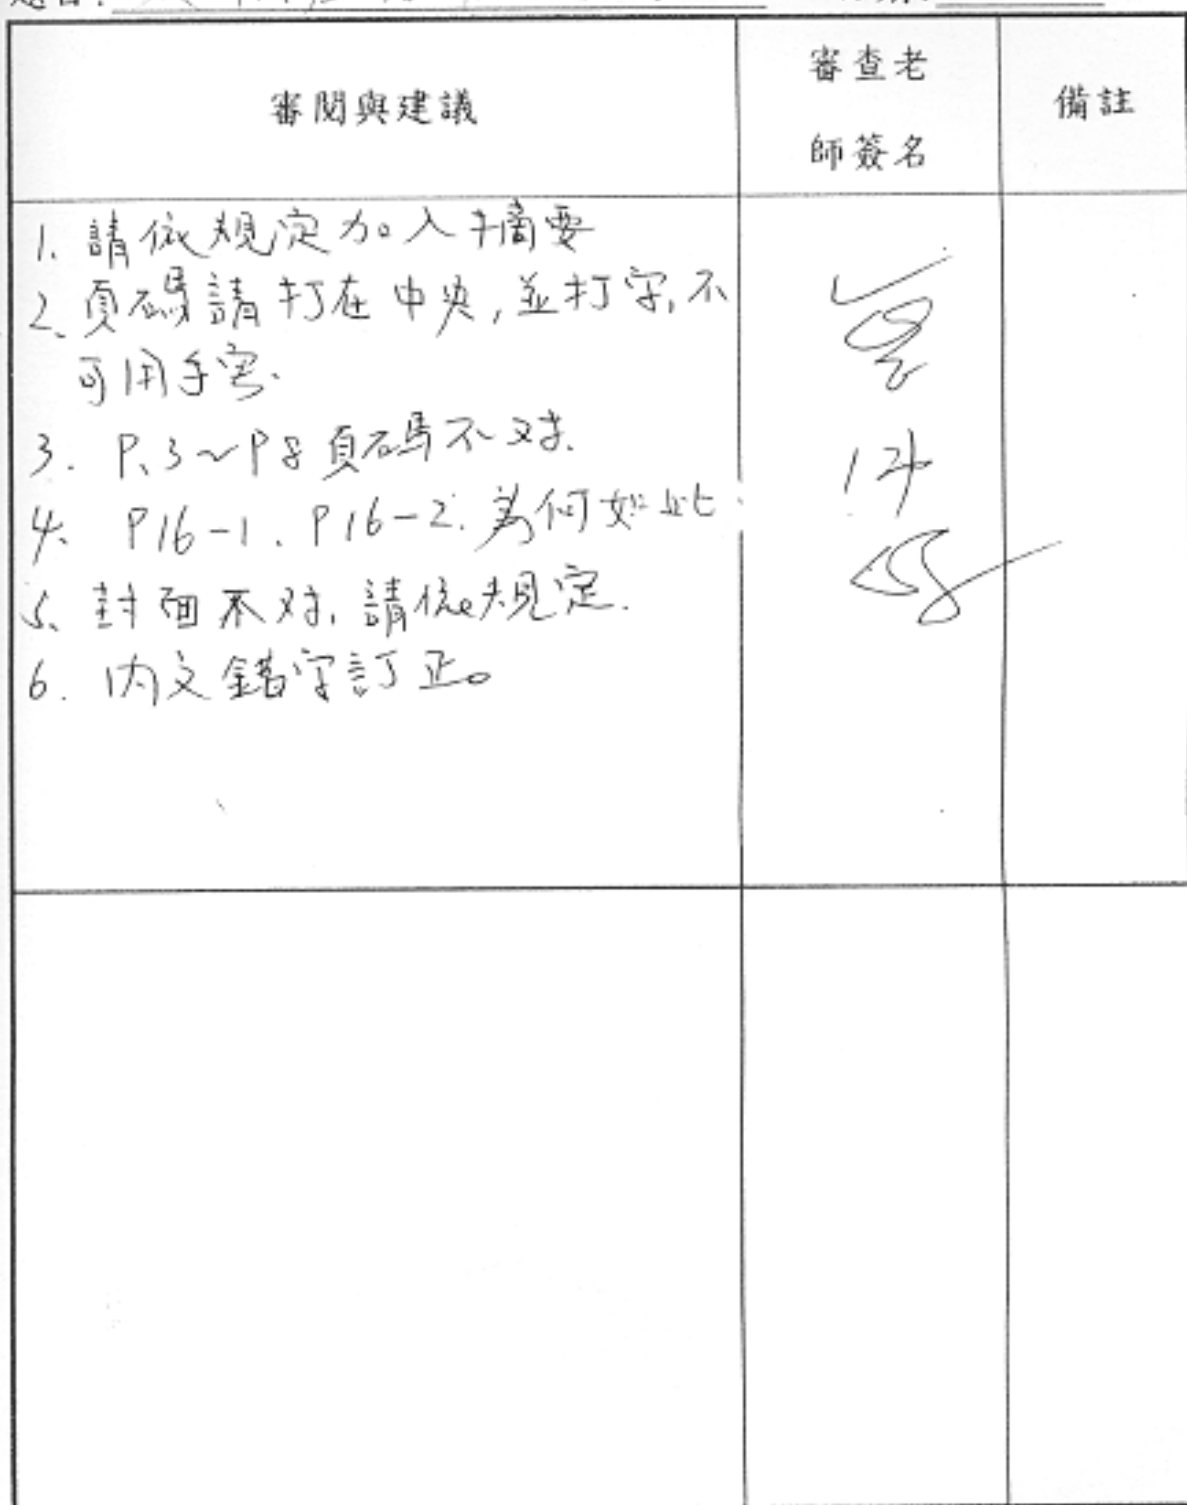 審閱與建議
審查老
師簽名
備註
1. 請依規定加入摘要
2. 頁碼請打在中央,並打字,不
可用手寫.
3. P.3~P8頁碼不对.
4. P16-1、P16-2.為何如此
5. 封面不对,請依規定.
6. 内文錯字訂正。